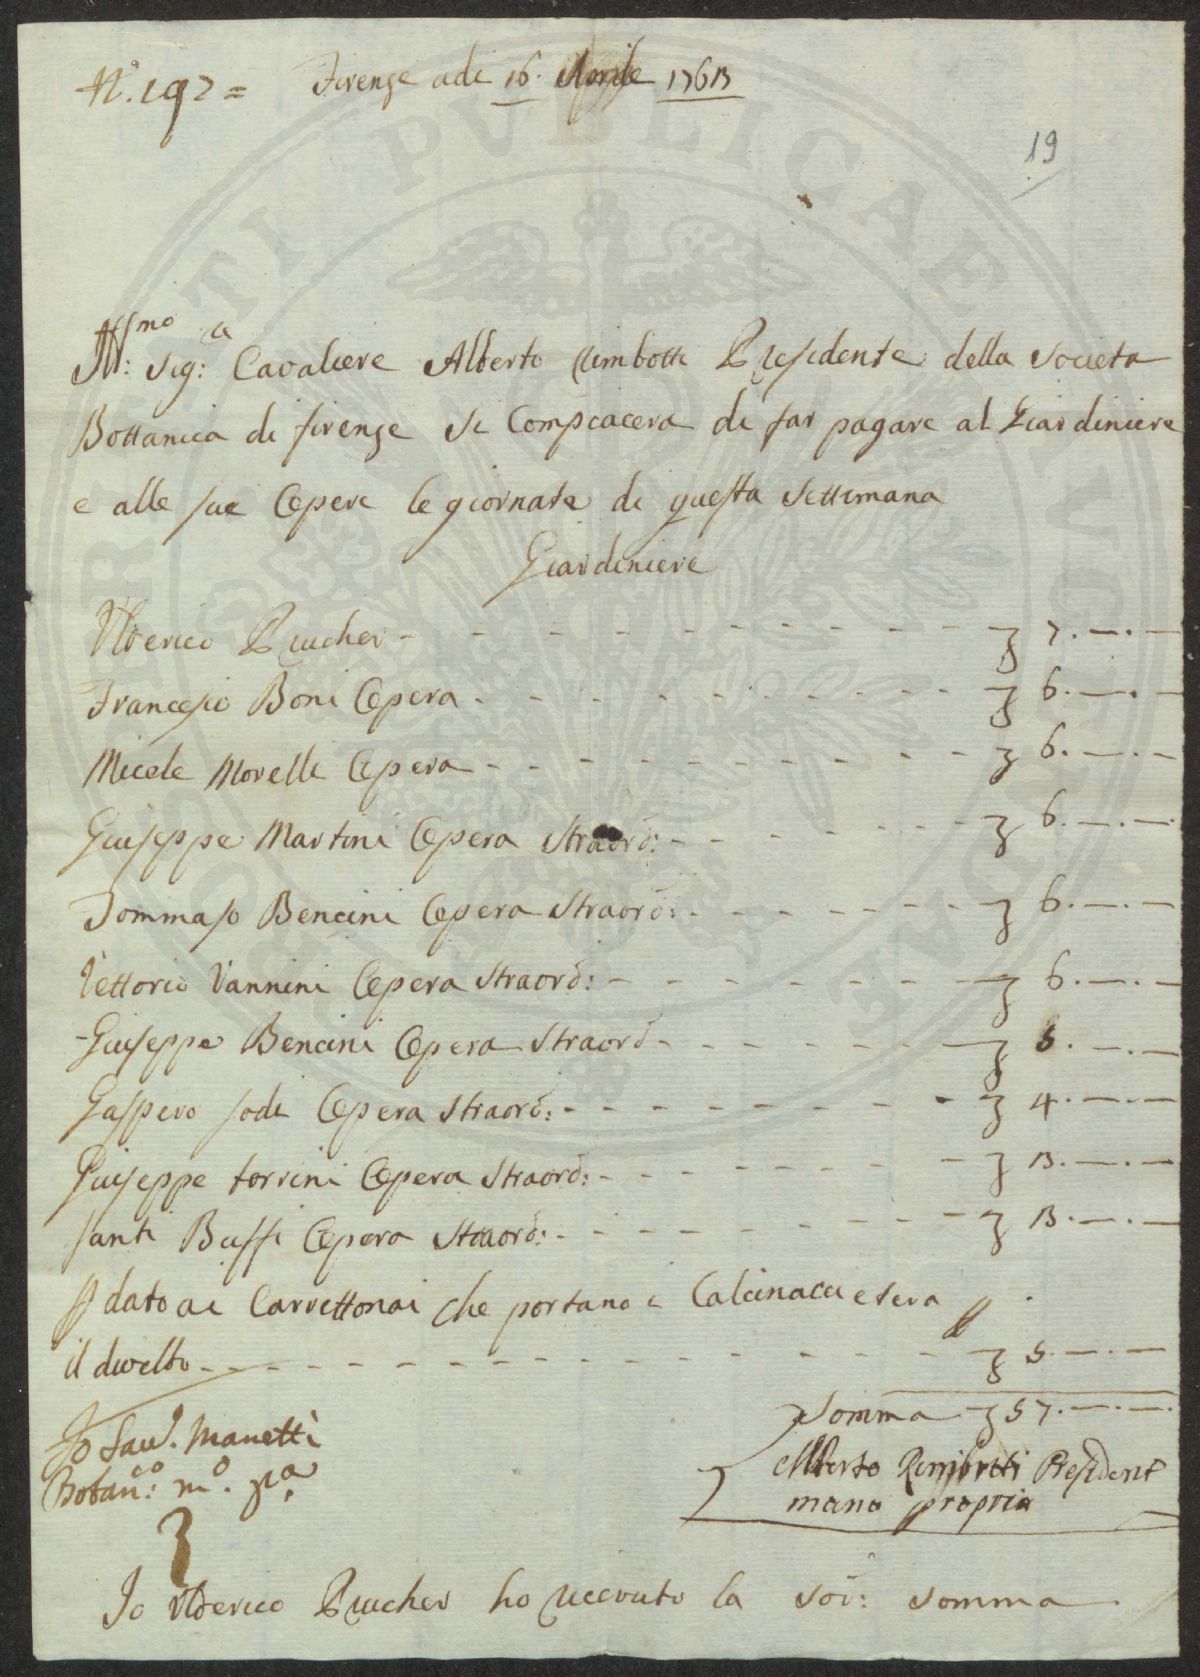 N.° 197 = Firenze adi 16. Aprile 1763
19
Ill:mo Sig:re Cavaliere Alberto Rimbotti Presidente della Societa
Bottanica di firenze si Compiacera di far pagare al Giardiniere
e alle sue Opere le giornate di questa Settimana
Giardiniere
Ulderico Prucher - - - - - - - - - - - - £ 7.—.—
Francesco Boni Opera - - - - - - - - - - £ 6.—.—
Micele Morelli Opera - - - - - - - - - - £ 6.—.—
Giuseppe Martini Opera Straord: - - - - - £ 6.—.—
Tommaso Bencini Opera Straord: - - - - - - £ 6.—.—
Vettorio Vannini Opera Straord: - - - - - £ 6.—.—
Giuseppe Bencini Opera Straord - - - - - - £ 5.—.—
Gaspero Sodi Opera Straord: - - - - - - - £ 4.—.—
Giuseppe torrini Opera Straord: - - - - - £ 3.—.—
Santi Buffi Opera Straord: - - - - - - - £ 3.—.—
P dato ai Carrettonai che portano i Calcinacci e tera p
il divelto - - - - - - - - - - - - - - - £ 5.—.—
Somma £ 57.—.—
Io Sav. Manetti
Botan:co m.o p.a
Alberto Rimbotti President
mano propria
Io Ulderico Prucher ho riceuto la sod: somma